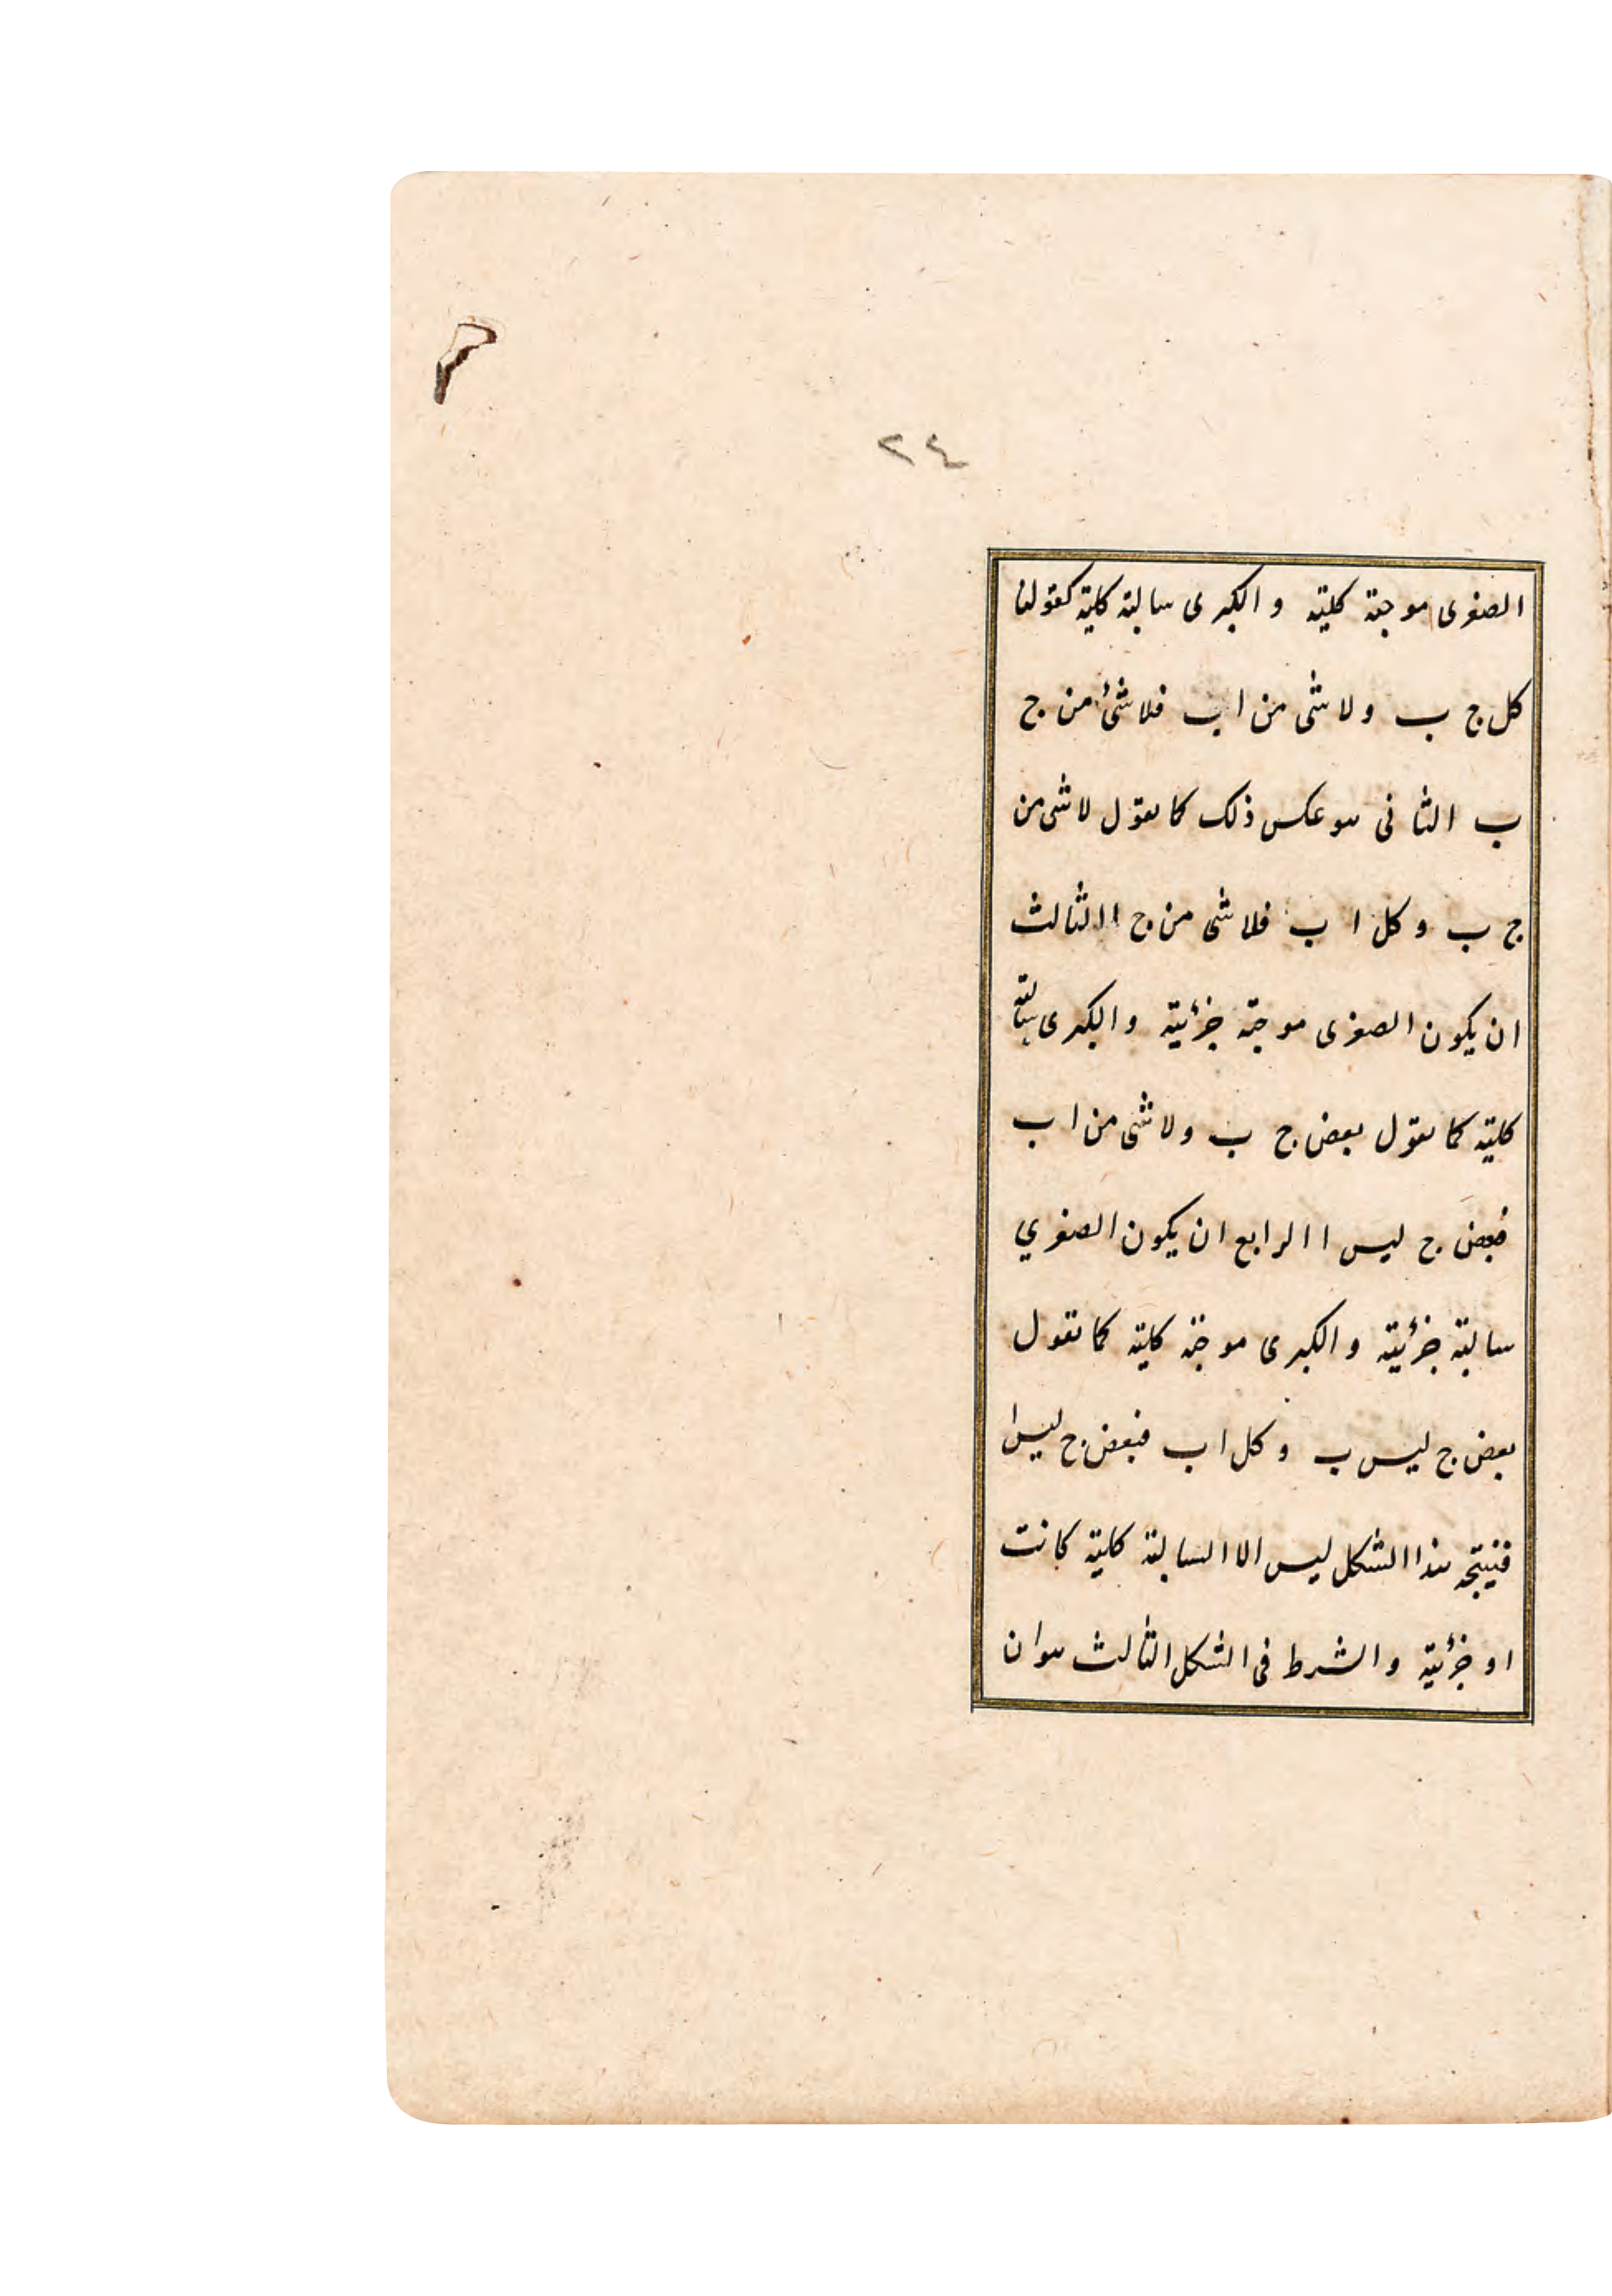 ٢٤
الصغرى موجبة كلية و الكبرى سالبة كلية كقولنا
كل ج ب ولا شى من ا ب فلا شئ من ج
ب الثانى هو عكس ذلك كما نقول لا شى من
ج ب و كل ا ب فلا شى من ج ا الثالث
ان يكون الصغرى موجبة جزئية و الكبرى سالبة
كلية كما نقول بعض ج ب ولا شى من ا ب
فبعض ج ليس ا الرابع ان يكون الصغري
سالبة جزئية و الكبرى موجبة كلية كما نقول
بعض ج ليس ب و كل ا ب فبعض ج ليس ا
فنتيجة هذا الشكل ليس الا السالبة كلية كانت
او جزئية و الشرط فى الشكل الثالث هو ان